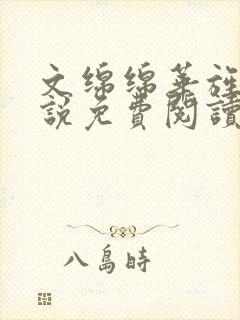 文綿綿華旌
說免費閱讀
八島時